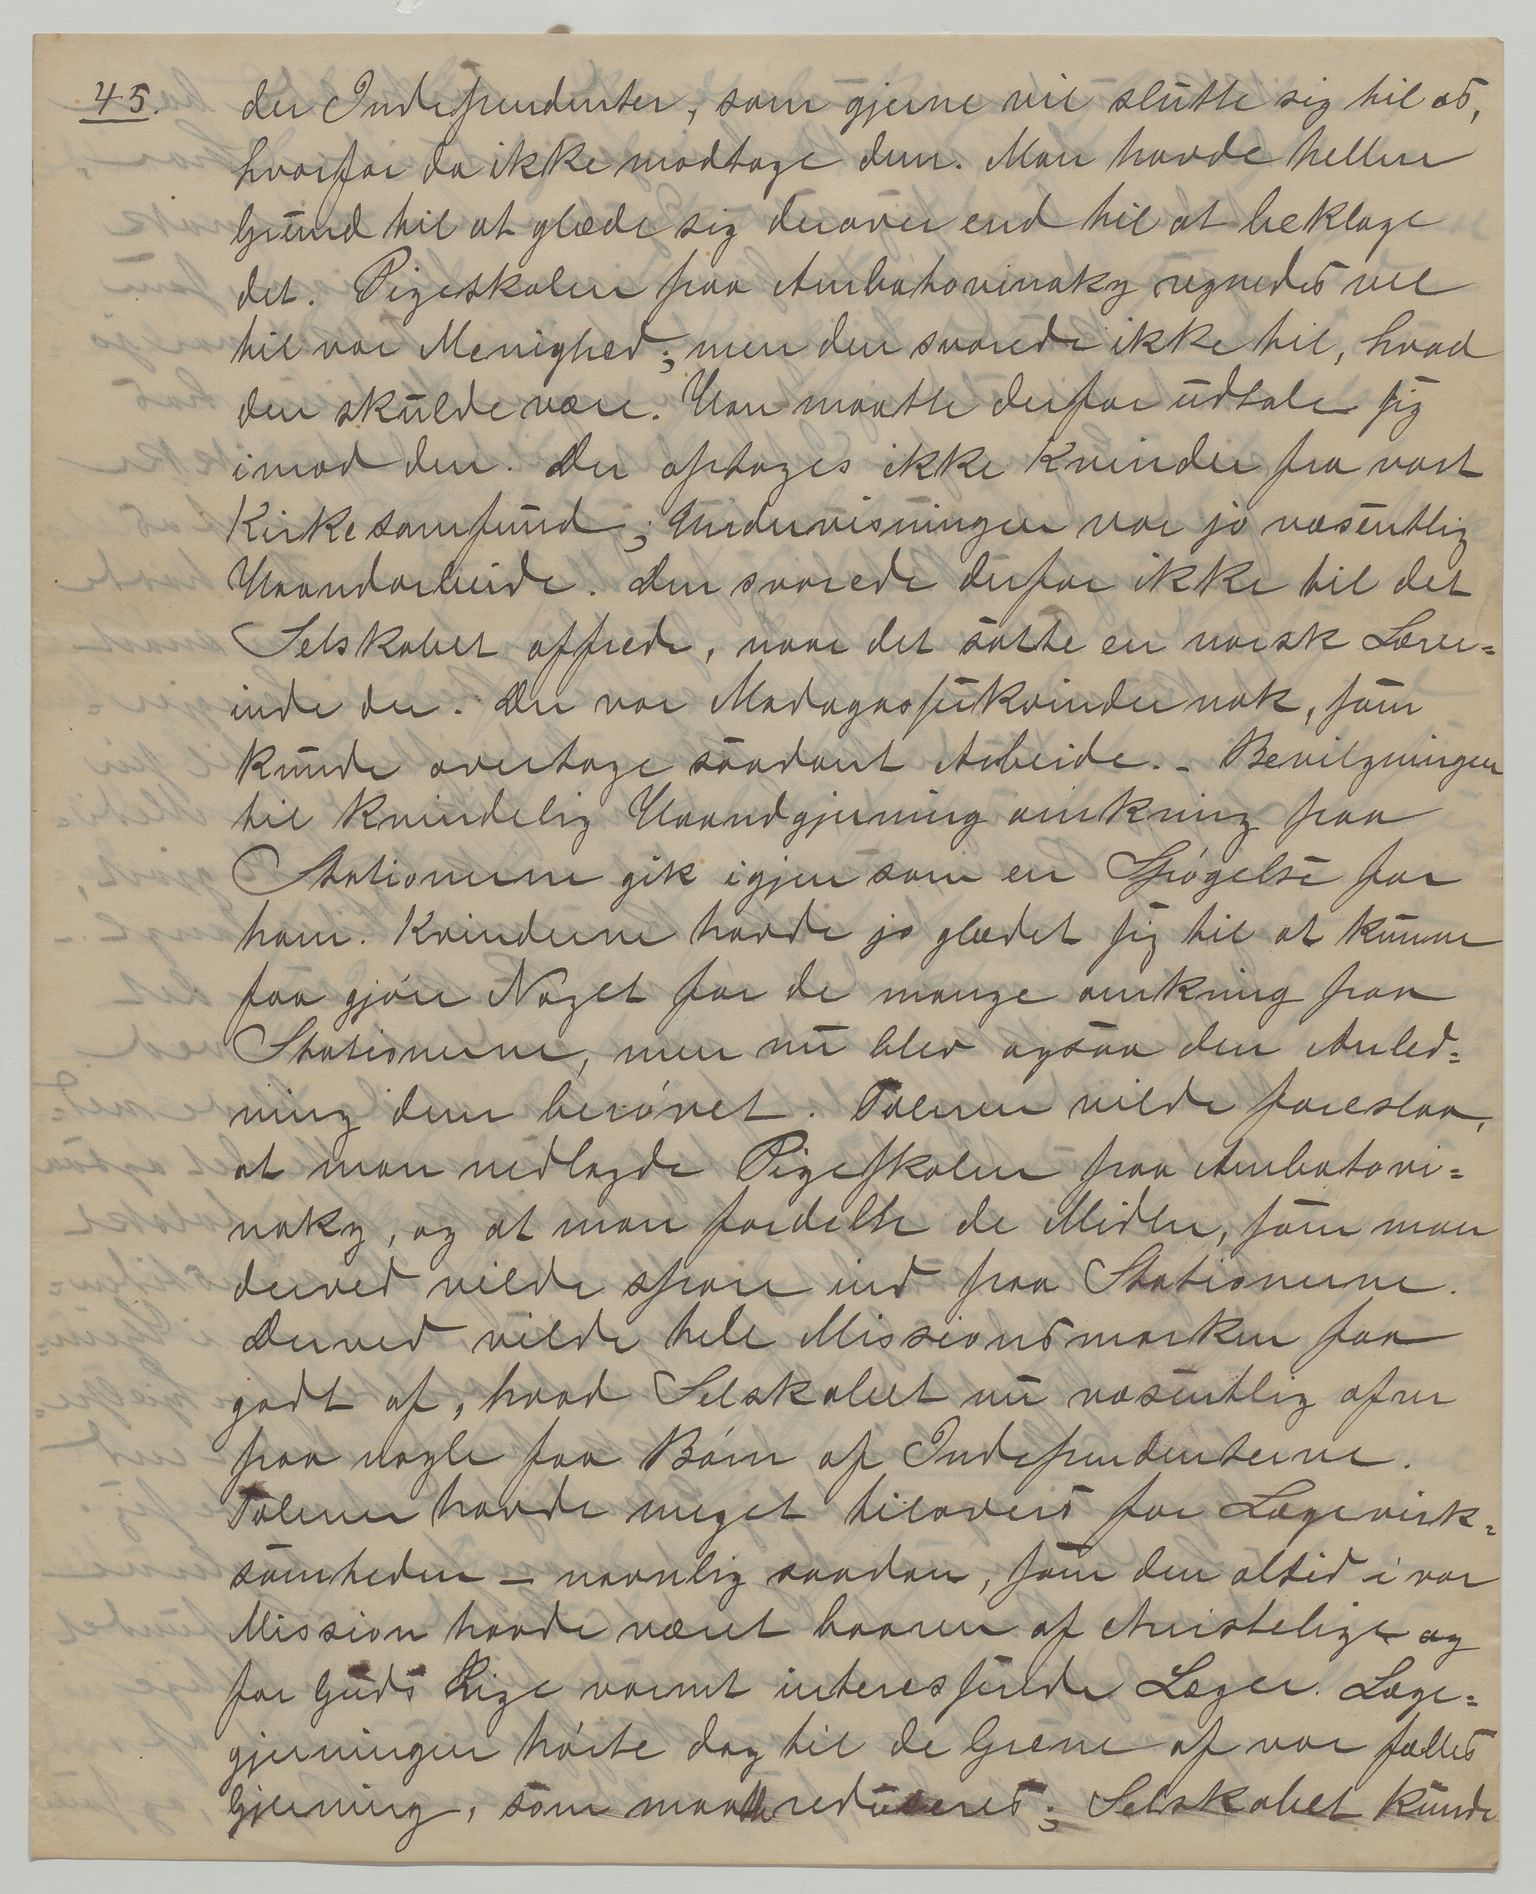 45.
der Independenter, som gjerne vil slutte sig til os,
hvorfor da ikke modtage dem. Man havde heller
Grund til at glæde sig derover end til at beklage
det. Pigeskolen paa Ambatovinaky regnedes vel
til vor Menighed; men den svarede ikke til, hvad
den skulde være. Han maatte derfor udtale sig
imod den. Der optages ikke Kvinder fra vort
Kirkesamfund; Undervisningen var jo væsentlig
Haandarbeide. Den svarede derfor ikke til det
Selskabet offrede, naar det satte en norsk Lærer=
inde der. Der var Madagasserkvinder nok, som
kunde overtage saadant Arbeide. – Bevilgningen
til kvindelig Haandgjerning omkring paa
Stationerne gik igjen som en Spøgelse for
ham. Kvinderne havde jo glædet sig til at kunne
faa gjøre Noget for de mange omkring paa
Stationerne, men nu blev ogsaa den Anled=
ning dem berøvet. Taleren vilde foreslaa,
at man nedlagde Pigeskolen paa Ambatovi=
naky, og at man fordelte de Midler, som man
derved vilde spare ind paa Stationerne.
Derved vilde hele Missionsmarken faa
godt af, hvad Selskabet nu væsentlig ofrer
paa nogle faa Børn af Independenterne.
Taleren havde meget tilovers for Lægevirk=
somheden – navnlig saadan, som den altid i vor
Mission havde været baaren af kristelige og
for Guds Rige varmt interesserede Læger. Læge=
gjerningen hørte dog til de Grene af vor fælles
Gjerning, som maatte reduceres; Selskabet kunde